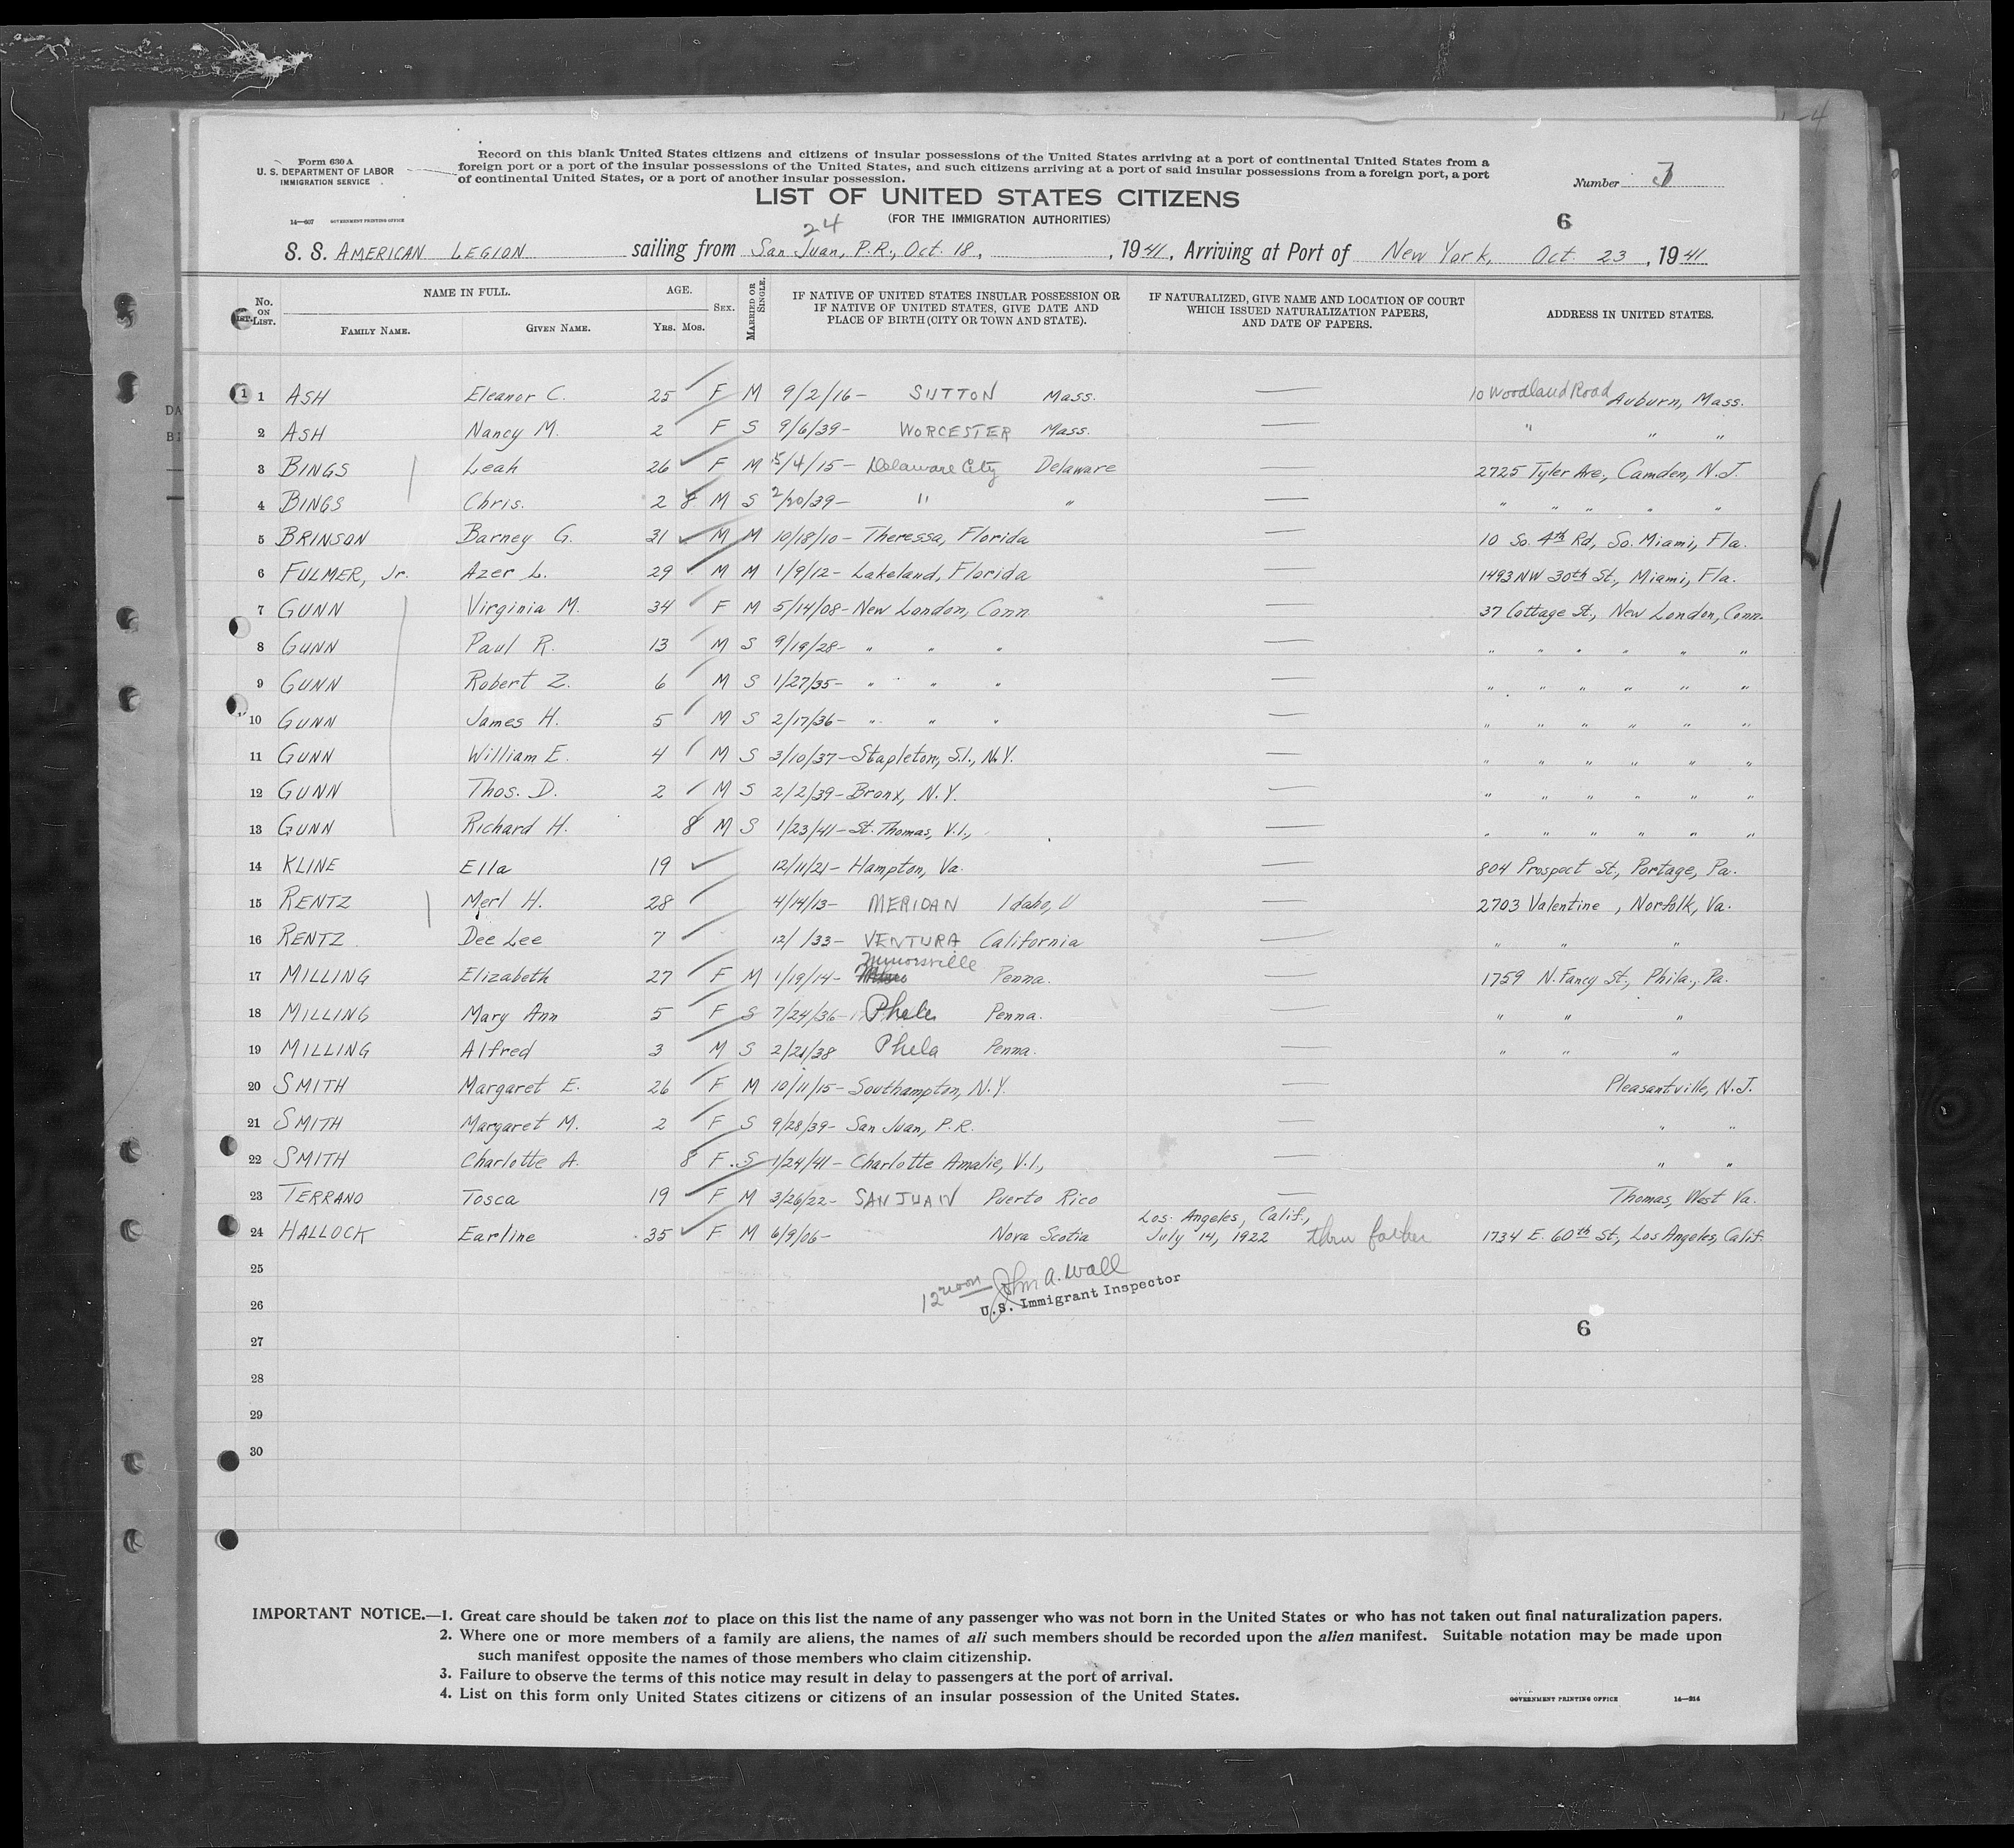 Form 630 A
U. S. DEPARTMENT OF LABOR
IMMIGRATION SERVICE
14—607 GOVERNMENT PRINTING OFFICE
Record on this blank United States citizens and citizens of insular possessions of the United States arriving at a port of continental United States from a
foreign port or a port of the insular possessions of the United States, and such citizens arriving at a port of said insular possessions from a foreign port, a port
of continental United States, or a port of another insular possession.
Number 3
LIST OF UNITED STATES CITIZENS
(FOR THE IMMIGRATION AUTHORITIES)
6
24
S. S. AMERICAN LEGION sailing from San Juan, P.R., Oct. 18, , 1941, Arriving at Port of New York, Oct 23, 1941
No. ON LIST. NAME IN FULL. FAMILY NAME. GIVEN NAME. AGE. Yrs. Mos. SEX. MARRIED OR SINGLE. IF NATIVE OF UNITED STATES INSULAR POSSESSION OR IF NATIVE OF UNITED STATES, GIVE DATE AND PLACE OF BIRTH (CITY OR TOWN AND STATE). IF NATURALIZED, GIVE NAME AND LOCATION OF COURT WHICH ISSUED NATURALIZATION PAPERS, AND DATE OF PAPERS. ADDRESS IN UNITED STATES.
1 1 ASH Eleanor C. 25 F M 9/2/16 - SUTTON Mass. — 10 Woodland Road Auburn, Mass.
2 ASH Nancy M. 2 F S 9/6/39 - WORCESTER Mass. — " " "
3 BINGS Leah 26 F M 5/4/15 - Delaware City Delaware — 2725 Tyler Ave., Camden, N.J.
4 BINGS Chris. 2 8 M S 2/20/39 - " " — " " " " "
5 BRINSON Barney G. 31 M M 10/18/10 - Theressa, Florida — 10 So. 4th Rd, So. Miami, Fla.
6 FULMER, Jr. Azer L. 29 M M 1/9/12 - Lakeland, Florida — 1493 NW 30th St., Miami, Fla.
7 GUNN Virginia M. 34 F M 5/14/08 - New London, Conn — 37 Cottage St., New London, Conn.
8 GUNN Paul R. 13 M S 9/19/28 - " " " — " " " " " "
9 GUNN Robert Z. 6 M S 1/27/35 - " " " — " " " " " "
10 GUNN James H. 5 M S 2/17/36 - " " " — " " " " " "
11 GUNN William E. 4 M S 3/10/37 - Stapleton, S.I., N.Y. — " " " " " "
12 GUNN Thos. D. 2 M S 2/2/39 - Bronx, N.Y. — " " " " " "
13 GUNN Richard H. 8 M S 1/23/41 - St. Thomas, V.I., — " " " " " "
14 KLINE Ella 19 12/11/21 - Hampton, Va. — 804 Prospect St., Portage, Pa.
15 RENTZ Merl H. 28 4/14/13 - MERIDAN Idaho, — 2703 Valentine , Norfolk, Va.
16 RENTZ Dee Lee 7 12/ /33 - VENTURA California — " " "
17 MILLING Elizabeth 27 F M 1/19/14 - Minorsville Penna. — 1759 N. Fancy St., Phila., Pa.
18 MILLING Mary Ann 5 F S 7/24/36 - Phila Penna. — " " "
19 MILLING Alfred 3 M S 2/21/38 Phila Penna. — " " "
20 SMITH Margaret E. 26 F M 10/11/15 - Southampton, N.Y. — Pleasantville, N.J.
21 SMITH Margaret M. 2 F S 9/28/39 - San Juan, P.R. — " "
22 SMITH Charlotte A. 8 F S 1/24/41 - Charlotte Amalie, V.I., — " "
23 TERRANO Tosca 19 F M 3/26/22 - SAN JUAN Puerto Rico — Thomas, West Va.
24 HALLOCK Earline 35 F M 6/9/06 - Nova Scotia Los Angeles, Calif., July 14, 1922 thru father 1734 E. 60th St., Los Angeles, Calif.
25
12 noon John A. Wall
U.S. Immigrant Inspector
26
27 6
28
29
30
IMPORTANT NOTICE.—1. Great care should be taken not to place on this list the name of any passenger who was not born in the United States or who has not taken out final naturalization papers.
2. Where one or more members of a family are aliens, the names of all such members should be recorded upon the alien manifest. Suitable notation may be made upon
such manifest opposite the names of those members who claim citizenship.
3. Failure to observe the terms of this notice may result in delay to passengers at the port of arrival.
4. List on this form only United States citizens or citizens of an insular possession of the United States.
GOVERNMENT PRINTING OFFICE 14—314